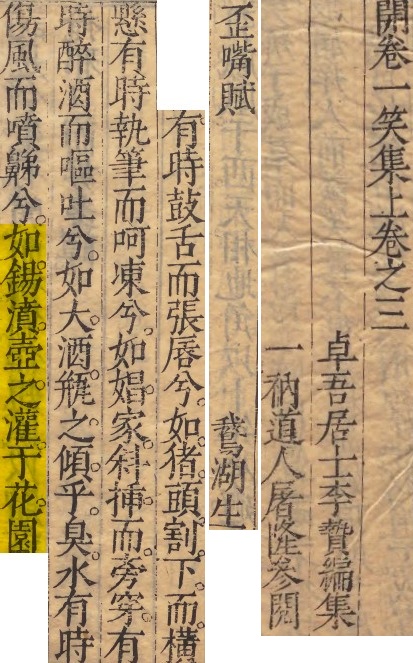 開卷一笑集上卷之三
卓吾居士李贄編集
一衲道人屠隆參閱
歪嘴賦 鵞湖生
有時鼓舌而張唇兮。如猪頭割下而橫
懸有時執筆而呵凍兮。如娼家斜揷而旁穿有
時醉酒而嘔吐兮。如大酒之傾乎臭水有時
傷風而噴兮。如錫濆壺之灌于花園